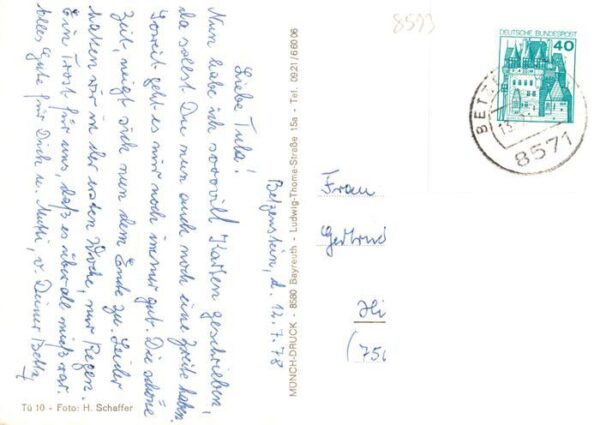 Betzenstein, d. 12.7.78
Liebe Tula!
Nun habe ich sooovill Karten geschrieben,
da sollst Du nun auch noch eine Zeile haben.
Soweit geht es mir noch immer gut. Die schöne
Zeit neigt sich nun dem Ende zu. Leider
hatten wir in der ersten Woche, nur Regen.
Ein Trost für uns, daß es überall mieß war.
Alles Gute für Dich u. Mutti, v. Deiner Betty
Tü 10 - Foto: H. Schaffer
MÜNCH-DRUCK - 8580 Bayreuth - Ludwig-Thoma-Straße 15a - Tel. 0921/66006
8593
DEUTSCHE BUNDESPOST
40
BETZ
13.
8571
Frau
Gertrud
Hi
(750